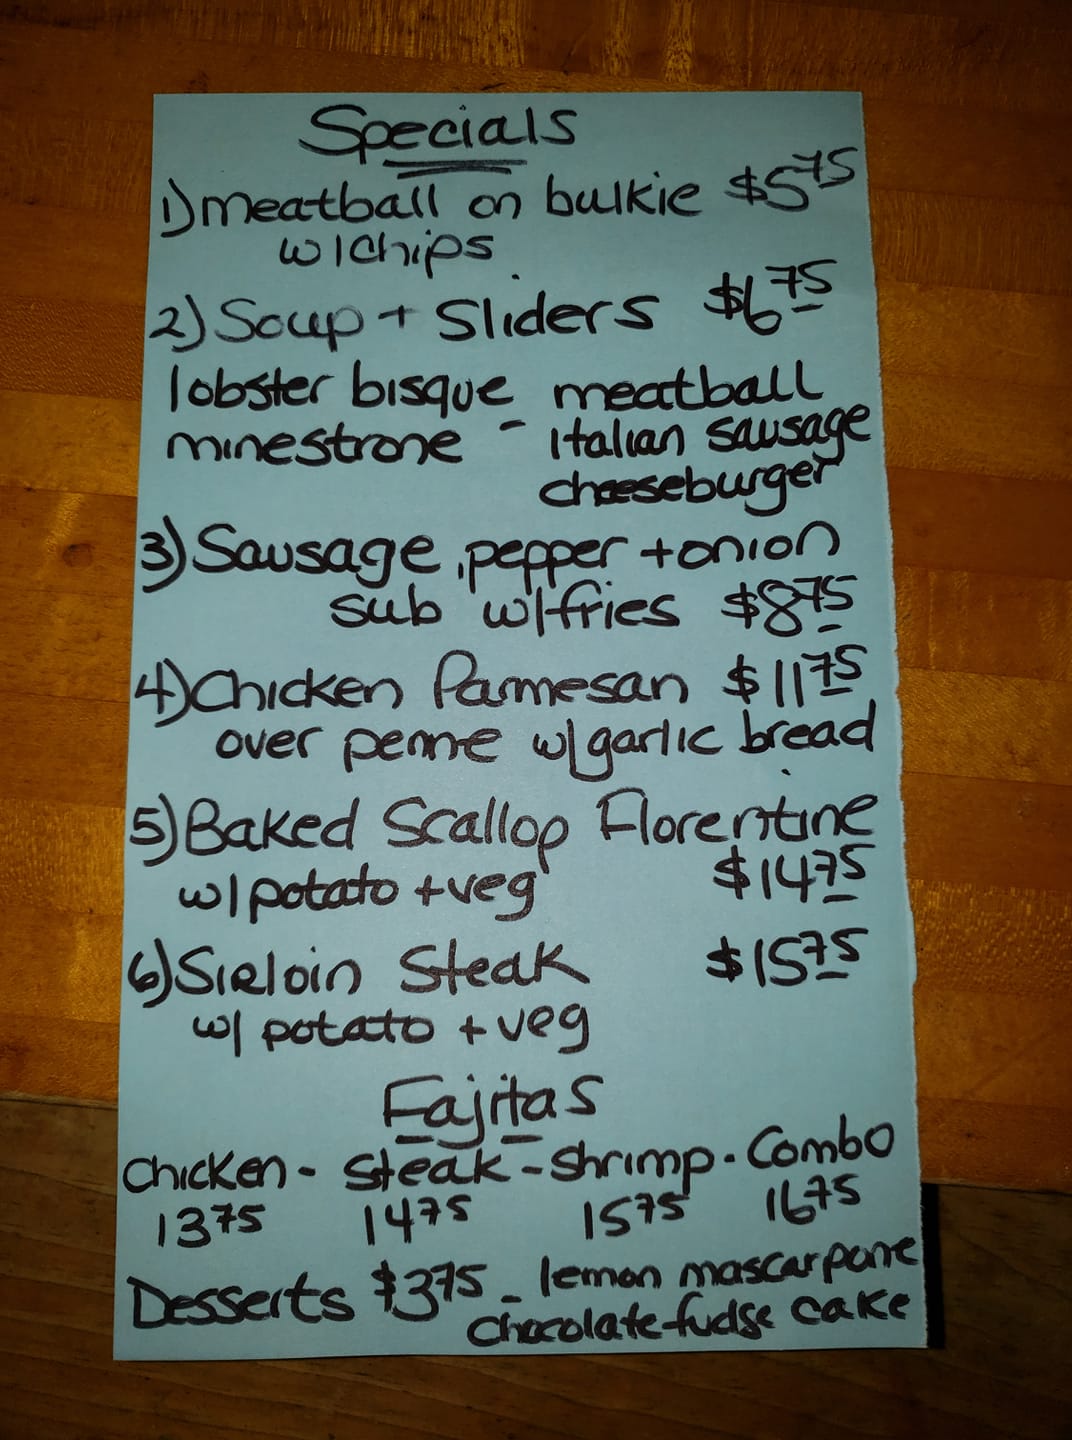 Specials
1) meatball on bulkie $5 75
w/chips
2) Soup + Sliders $6 75
lobster bisque - meatball
minestrone - italian sausage
cheeseburger
3) Sausage, pepper + onion
sub w/fries $8 75
4) Chicken Parmesan $11 75
over penne w/garlic bread
5) Baked Scallop Florentine
w/potato + veg $14 75
6) Sirloin Steak $15 75
w/ potato + veg
Fajitas
Chicken - Steak - Shrimp - Combo
13 75 14 75 15 75 16 75
Desserts $3 75 - lemon mascarpone
chocolate fudge cake